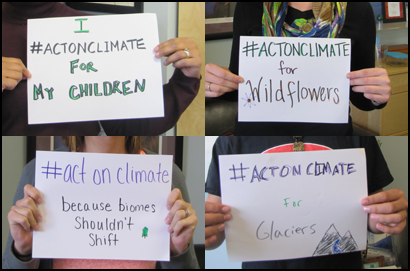 I
#ACTONCLIMATE
FOR
MY CHILDREN
#ACTONCLIMATE
for
Wildflowers
#act on climate
because biomes
Shouldn't
Shift
#ACTONCLIMATE
For
Glaciers